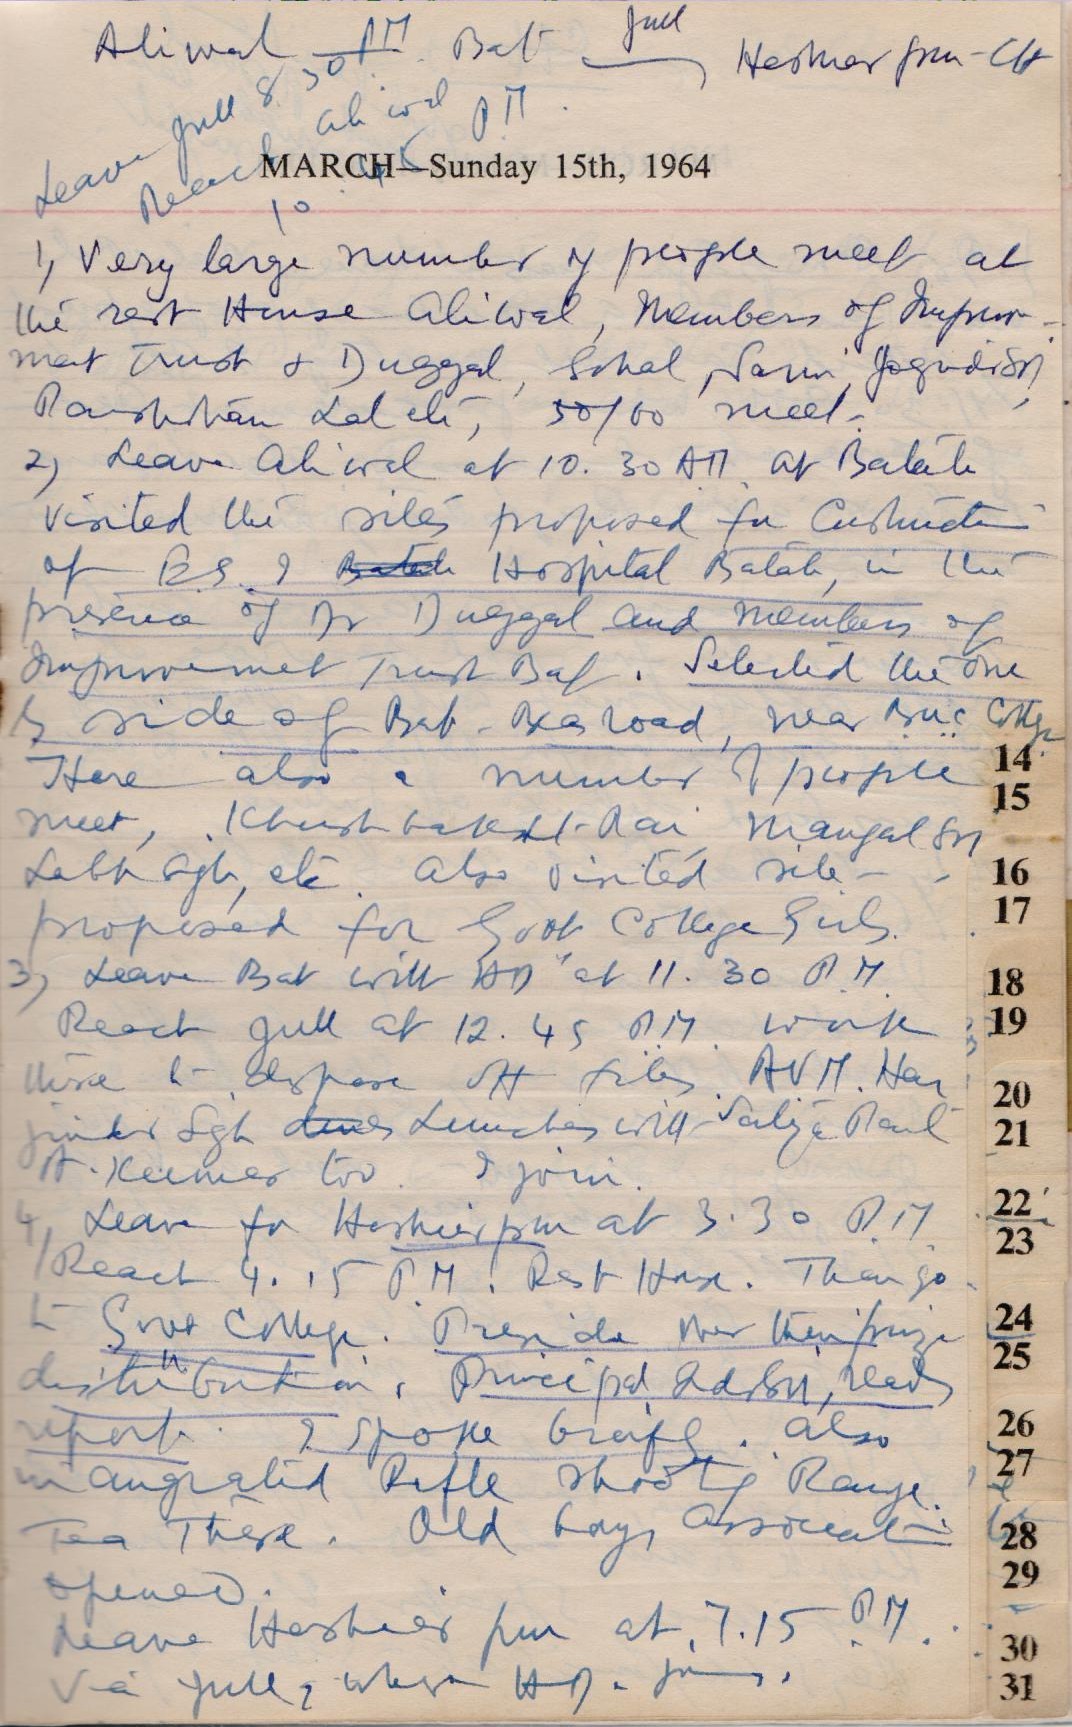 Aliwal PM Bat Jull Hoshiarpur - CH
Leave Jull 8.30
Reach Aliwal PM.
10.45
MARCH—Sunday 15th, 1964
1, Very large number of people meet at
the rest House Aliwal, Members of Improv-
ment Trust & Duggal, Sohal,
Lal etc, 50/60 meet.
2, Leave Aliwal at 10.30 AM at Batala
visited the sites proposed for Construction
of E.S.I Batala Hospital Batala, in the
presence of Dr Duggal and Members of
Improvement Trust Bat. Selected the one
side of Bat - road, near College
Here also a number of people
meet, Khushbakht Rai, Mangal Sn
Labh Sgh, etc. Also visited site
proposed for Govt College Girls.
3, Leave Bat with HD at 11.30 P.M.
Reach Jull at 12.45 P.M. work
there to dispose off files. AVM. Har
jinder Sgh Lunches with
too. I join.
4, Leave for Hoshiarpur at 3.30 P.M.
Reach 4.15 P.M. Rest House. Then go
to Govt College. Preside over their prize
distribution. Principal reads
report. I spoke briefly. Also
inaugrated Rifle Shooting Range.
Tea There. Old boys Association
opened.
Leave Hoshiarpur at 7.15 P.M.
Via Jull, where HD. joins.
14
15
16
17
18
19
20
21
22
23
24
25
26
27
28
29
30
31